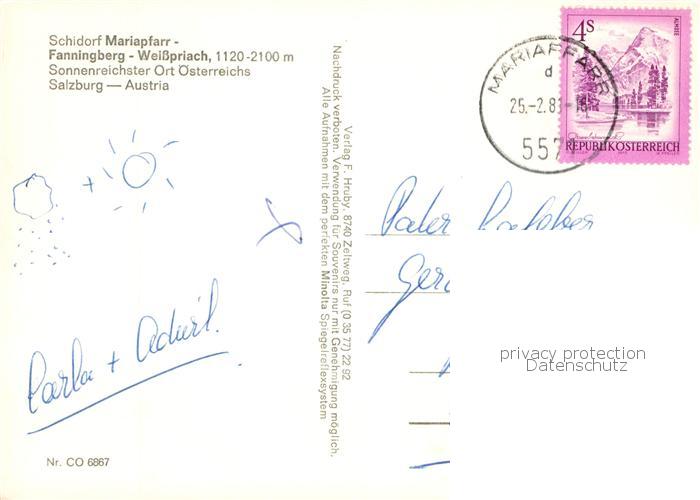 Schidorf Mariapfarr -
Fanningberg - Weißpriach, 1120-2100 m
Sonnenreichster Ort Österreichs
Salzburg — Austria
+
Carla +
Nr. CO 6867
Verlag F. Hruby, 8740 Zeltweg, Ruf (0 35 77) 22 92
Nachdruck verboten. Verwendung für Souvenirs nur mit Genehmigung möglich.
Alle Aufnahmen mit dem perfekten Minolta Spiegelreflexsystem
MARIAPFARR
d
25.-2.8
557
4S
ALMSEE
REPUBLIK ÖSTERREICH
privacy protection
Datenschutz